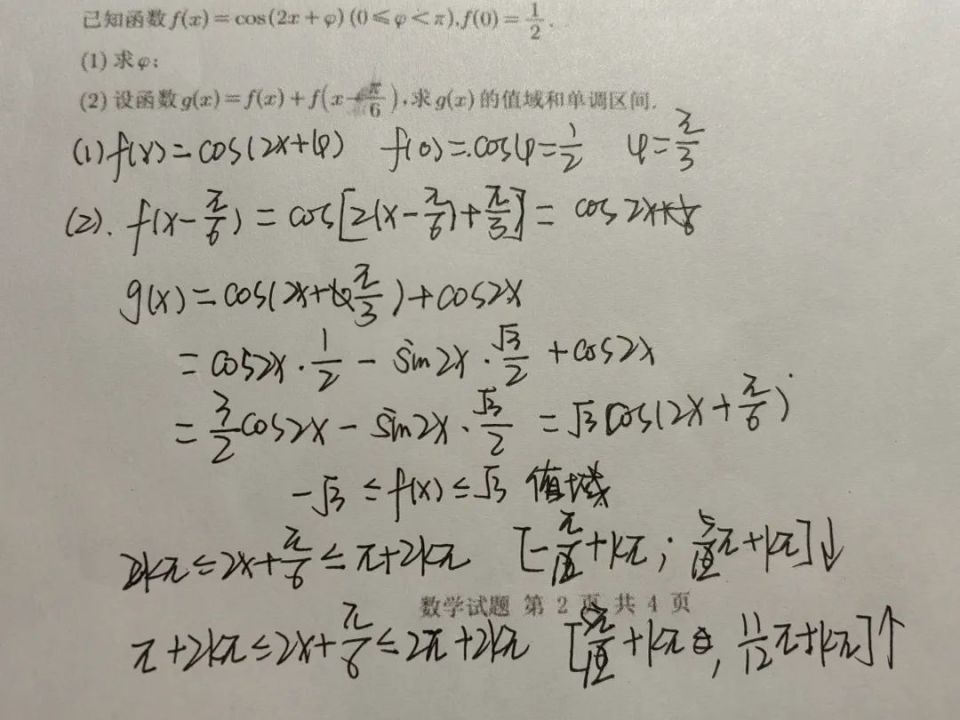 已知函数f(x)=cos(2x+φ)(0≤φ<π),f(0)=1/2.
(1)求φ;
(2)设函数g(x)=f(x)+f(x-π/6),求g(x)的值域和单调区间.
(1) f(x)=cos(2x+φ) f(0)=cosφ=1/2 φ=π/3
(2). f(x-π/6)=cos[2(x-π/6)+π/3]=cos2x
g(x)=cos(2x+π/3)+cos2x
=cos2x·1/2-sin2x·√3/2+cos2x
=3/2cos2x-sin2x·√3/2=√3cos(2x+π/6)
-√3≤f(x)≤√3 值域
2kπ≤2x+π/6≤π+2kπ [-π/12+kπ; 5/12π+kπ]↓
数学试题 第2页 共4页
π+2kπ≤2x+π/6≤2π+2kπ [5π/12+kπ, 11/12π+kπ]↑